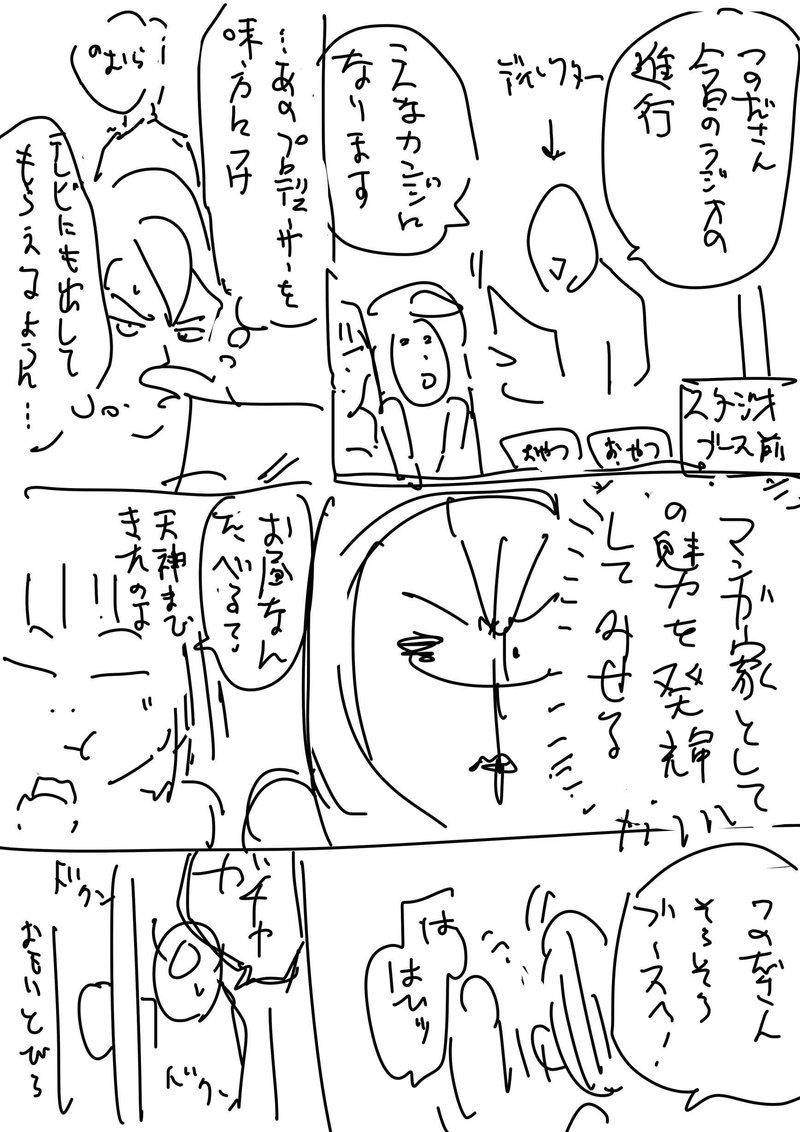 つのださん
今日のラジオの
進行
ディレクター
こんなカンジに
なります
スタジオ
ブース前
おやつ
おやつ
…あのプロデューサーを
味方につけ
のむら
テレビにも出して
もらえるように…
マンガ家として
の魅力を発揮
してみせる
お昼なん
たべる?
天神まむ
きれのよ
つのださん
そろそろ
ブースへ!
は
はひッ
ガチャ
ドクン
ドクン
おもいとびら